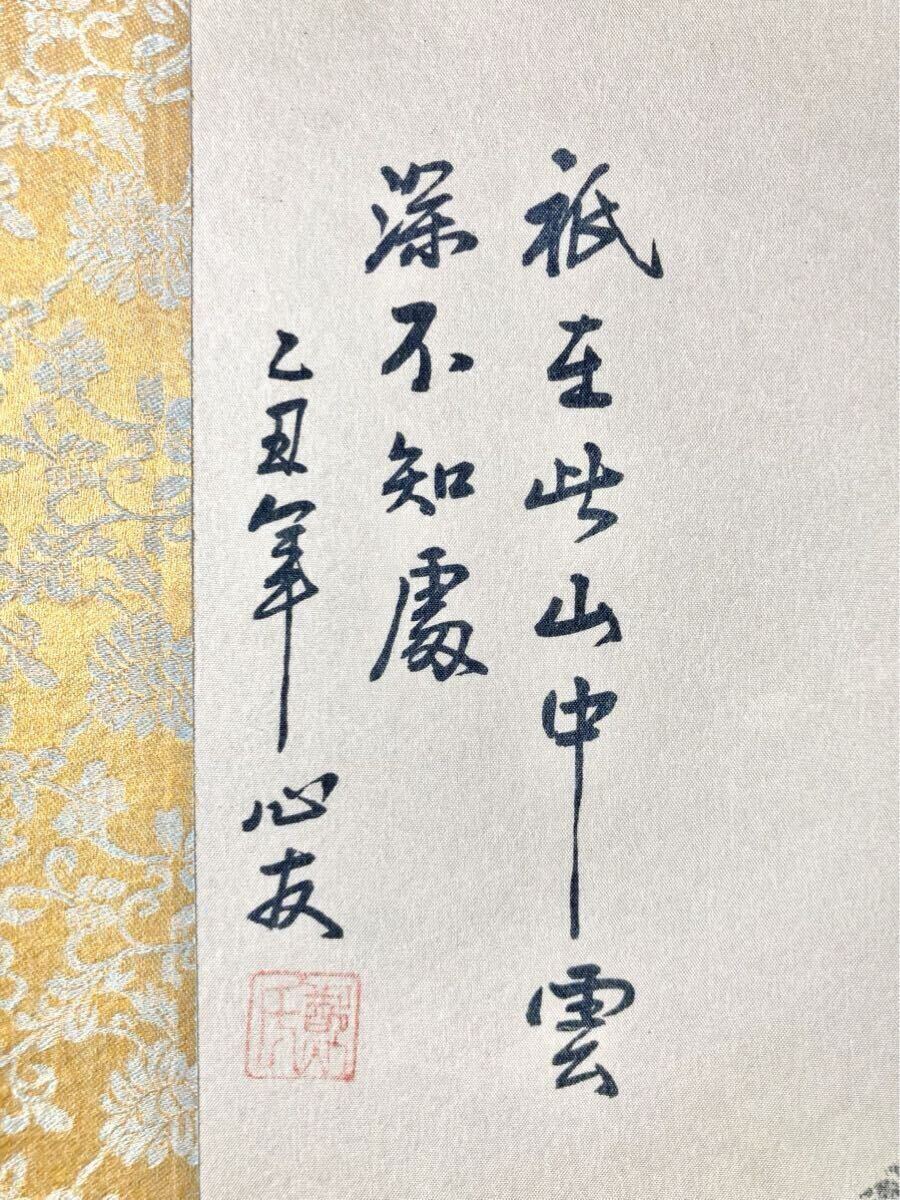 祇在此山中雲
深不知處
乙丑年心友
鄭氏